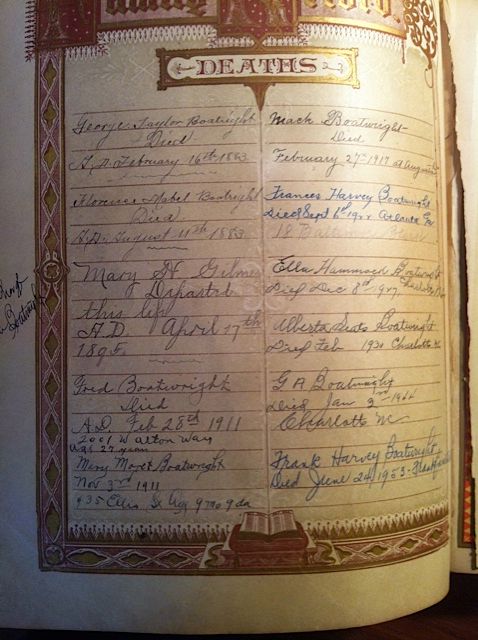 Family Record.
DEATHS
George Taylor Boatwright
Died
A.D. February 16th 1883
Florence Mabel Boatwright
Died
A.D. August 11th 1883
Mary H Gilmer
Departed
this life
A.D. April 17th
Fred Boatwright
Died
A.D. Feb 28th 1911
2001 Walton Way
age 27 years
Mary Boatwright
Nov 3rd 1911
935 Ellis St Aug
Mack Boatwright
Died
February 27th 1917 at Augusta
Frances Harvey Boatwright
Died Sept Atlanta Ga
18
Ella Hammock Boatwright
Died Dec 8th
Alberta Boatwright
Died Feb 1930 Charlotte NC
G A Boatwright
Died Jan
Charlotte NC
Frank Harvey Boatwright
Died June 24, 1953
Boatwright